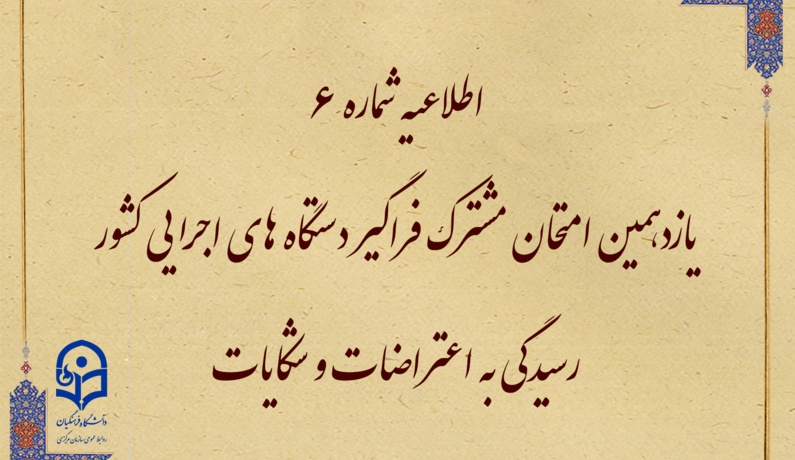 اطلاعیه شماره ۶
یازدهمین امتحان مشترک فراگیر دستگاه های اجرایی کشور
رسیدگی به اعتراضات و شکایات
دانشگاه فرهنگیان
روابط عمومی سازمان مرکزی